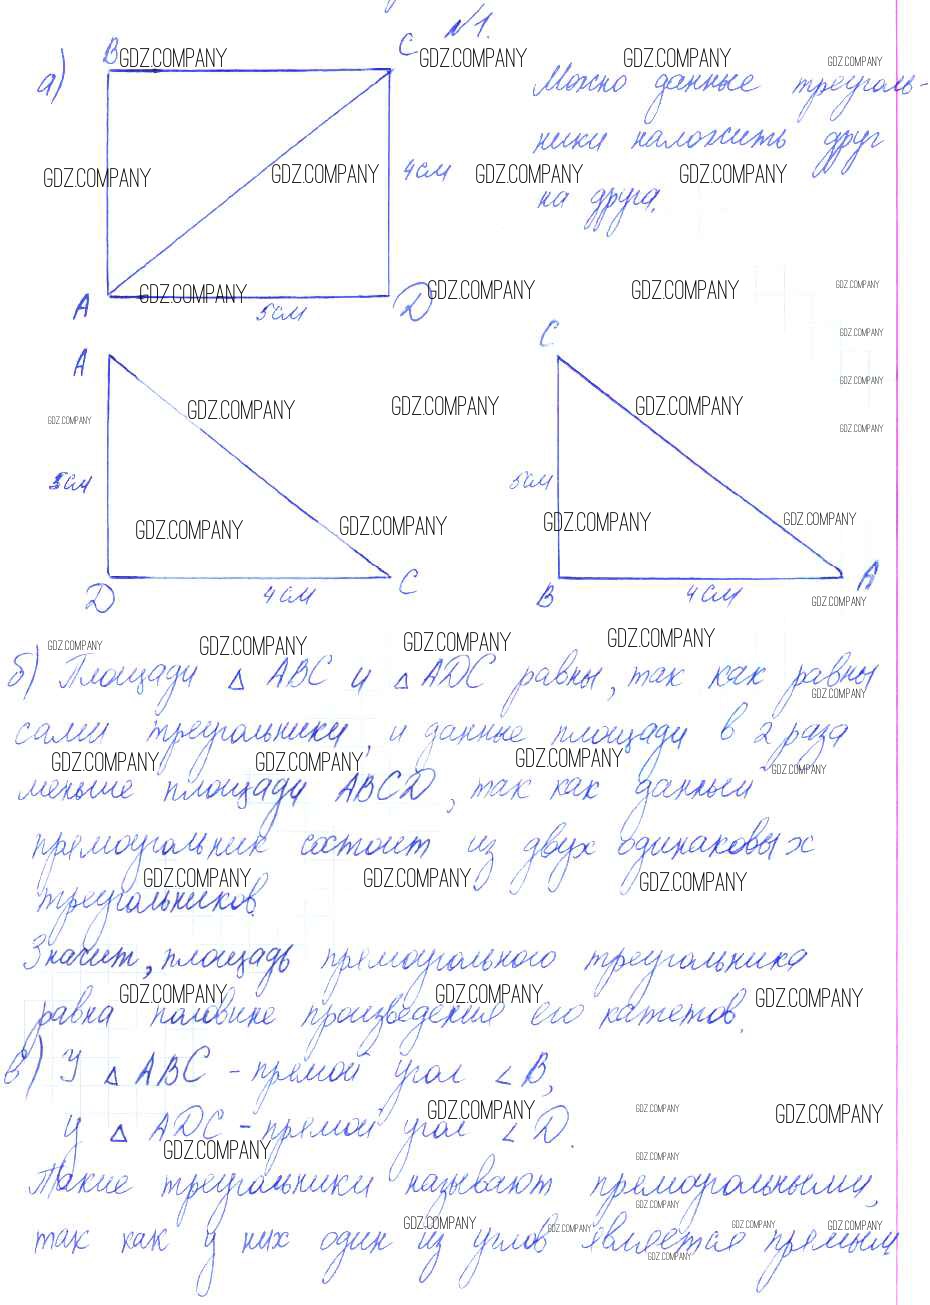 №1.
а)
B
C
Можно данные треуголь-
ники наложить друг
на друга.
4см
A
5см
D
A
C
5см
5см
D
4см
C
B
4см
A
б) Площади △ ABC и △ ADC равны, так как равны
сами треугольники, и данные площади в 2 раза
меньше площади ABCD, так как данный
прямоугольник состоит из двух одинаковых
треугольников.
Значит, площадь прямоугольного треугольника
равна половине произведения его катетов.
в) У △ ABC - прямой угол ∠B,
у △ ADC - прямой угол ∠D.
Такие треугольники называют прямоугольными,
так как у них один из углов является прямым
GDZ.COMPANY